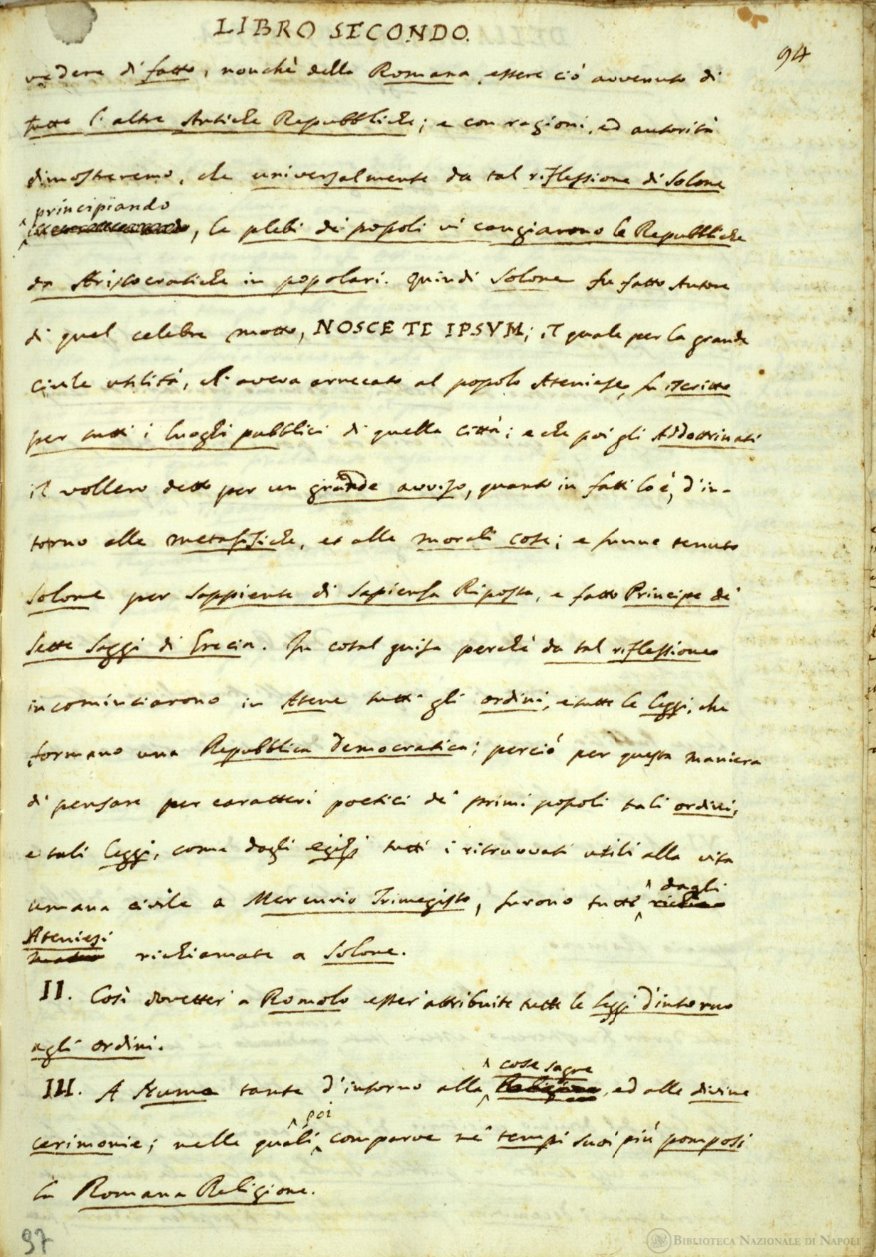 LIBRO SECONDO.
94
vedere di fatto, nonchè della Romana essere ciò avvenuto di
tutte l'altre Antiche Repubbliche; e con ragioni, ed autorità
dimostreremo, che universalmente da tal riflessione di Solone
principiando
, le plebi dei popoli vi cangiarono le Repubbliche
da Aristocratiche in popolari. Quindi Solone fu fatto Autore
di quel celebre motto, NOSCE TE IPSVM; il quale per la grande
civile utilità, ch'aveva arrecato al popolo Ateniese, fu iscritto
per tutti i luoghi pubblici di quella città; e che poi gli Addottrinati
il vollero detto per un grande avviso, quanto in fatti lo è, d'in-
torno alle metafisiche, et alle morali cose; e funne tenuto
Solone per sappiente di Sapienza Riposta, e fatto Principe de'
Sette Saggi di Grecia. In cotal guisa perchè da tal riflessione
incominciarono in Atene tutti gli ordini, e tutte le leggi, che
formano una Repubblica Democratica; perciò per questa maniera
di pensare per caratteri poetici de' primi popoli tali ordini,
e tali leggi, come dagli egizj tutti i ritruovati utili alla vita
umana civile a Mercurio Trimegisto, furono tutti dagli
Ateniesi richiamate a Solone.
II. Così dovetter' a Romolo esser attribuite tutte le leggi d'intorno
agli ordini.
III. A Numa tante d'intorno alle cose sagre, ed alle divine
cerimonie; nelle quali poi comparve ne' tempi suoi più pomposi
la Romana Religione.
97
BIBLIOTECA NAZIONALE DI NAPOLI